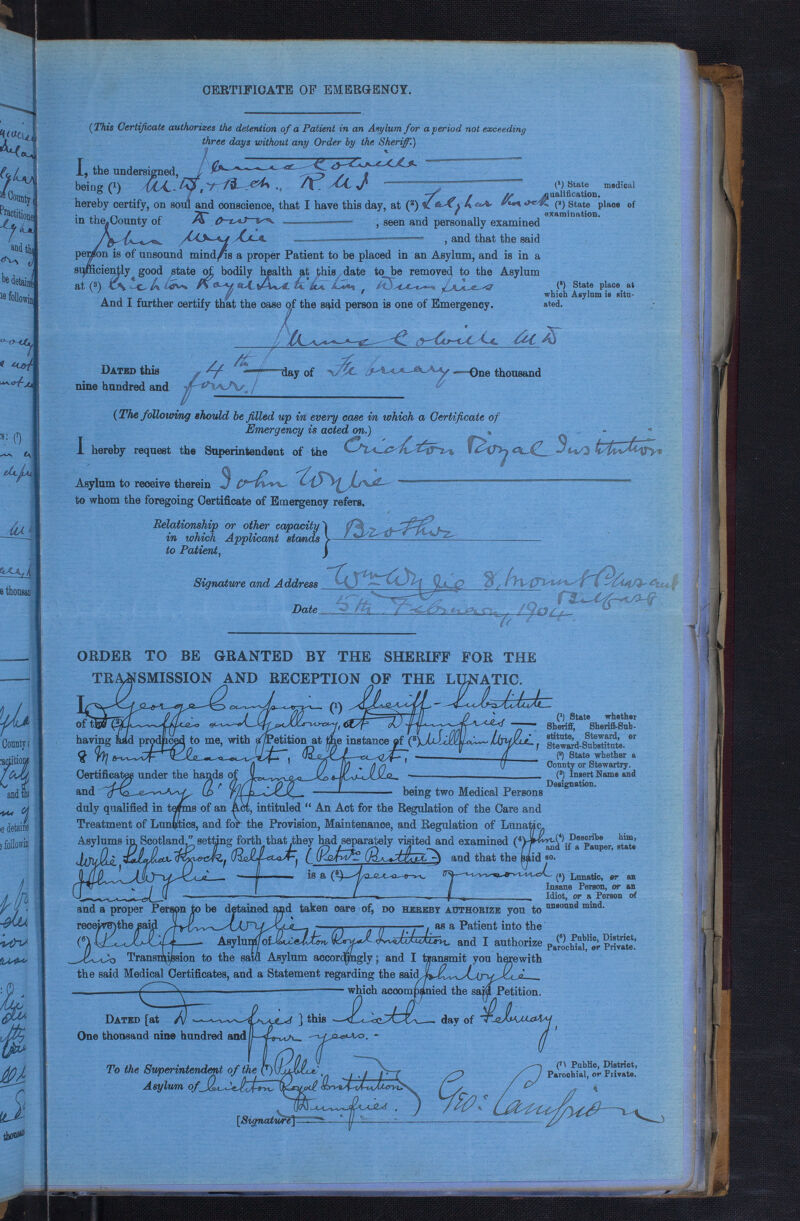 CERTIFICATE OF EMERGENCY.
(This Certificate authorizes the detention of a Patient in an Asylum for a period not exceeding
three days without any Order by the Sheriff.)
I, the undersigned, James Colville
being (¹) M.D., + B Ch., R.U.I
(¹) State medical
qualification.
hereby certify, on soul and conscience, that I have this day, at (²) Lalghar Knock
(²) State place of
examination.
in the County of Down , seen and personally examined
John Wylie , and that the said
person is of unsound mind, is a proper Patient to be placed in an Asylum, and is in a
sufficiently good state of bodily health at this date to be removed to the Asylum
at (³) Crichton Royal Institution, Dumfries
(³) State place at
which Asylum is situ-
ated.
And I further certify that the case of the said person is one of Emergency.
James Colville MD
DATED this 4th day of February One thousand
nine hundred and four.
(The following should be filled up in every case in which a Certificate of
Emergency is acted on.)
I hereby request the Superintendent of the Crichton Royal Institution
Asylum to receive therein John Wylie
to whom the foregoing Certificate of Emergency refers.
Relationship or other capacity
in which Applicant stands
to Patient,
Brother
Signature and Address Wm Wylie 8, Mount Pleasant
Belfast
Date 5th February, 1904
ORDER TO BE GRANTED BY THE SHERIFF FOR THE
TRANSMISSION AND RECEPTION OF THE LUNATIC.
I, George Campion (¹) Sheriff-Substitute
of the (²) Dumfries and Galloway, at Dumfries
(¹) State whether
Sheriff, Sheriff-Sub-
stitute, Steward, or
Steward-Substitute.
having had produced to me, with a Petition at the instance of (³) William Wylie,
8 Mount Pleasant, Belfast,
(²) State whether a
County or Stewartry.
Certificates under the hands of James Colville
(³) Insert Name and
Designation.
and Henry O'Neill being two Medical Persons
duly qualified in terms of an Act, intituled "An Act for the Regulation of the Care and
Treatment of Lunatics, and for the Provision, Maintenance, and Regulation of Lunatic
Asylums in Scotland," setting forth that they had separately visited and examined (⁴) John
Wylie, Lalghar Knock, Belfast, (Petrs Brother) and that the said
(⁴) Describe him,
and if a Pauper, state
so.
John Wylie is a (⁵) person of unsound
mind
(⁵) Lunatic, or an
Insane Person, or an
Idiot, or a Person of
unsound mind.
and a proper Person to be detained and taken care of, DO HEREBY AUTHORIZE you to
receive the said John Wylie as a Patient into the
(⁶) Public Asylum of Crichton Royal Institution and I authorize
(⁶) Public, District,
Parochial, or Private.
his Transmission to the said Asylum accordingly; and I transmit you herewith
the said Medical Certificates, and a Statement regarding the said John Wylie
which accompanied the said Petition.
DATED [at Dumfries ] this Sixth day of February,
One thousand nine hundred and four years.
To the Superintendent of the (⁷) Public
Asylum of Crichton Royal Institution
Dumfries.
(⁷) Public, District,
Parochial, or Private.
[Signature] Geo: Campion